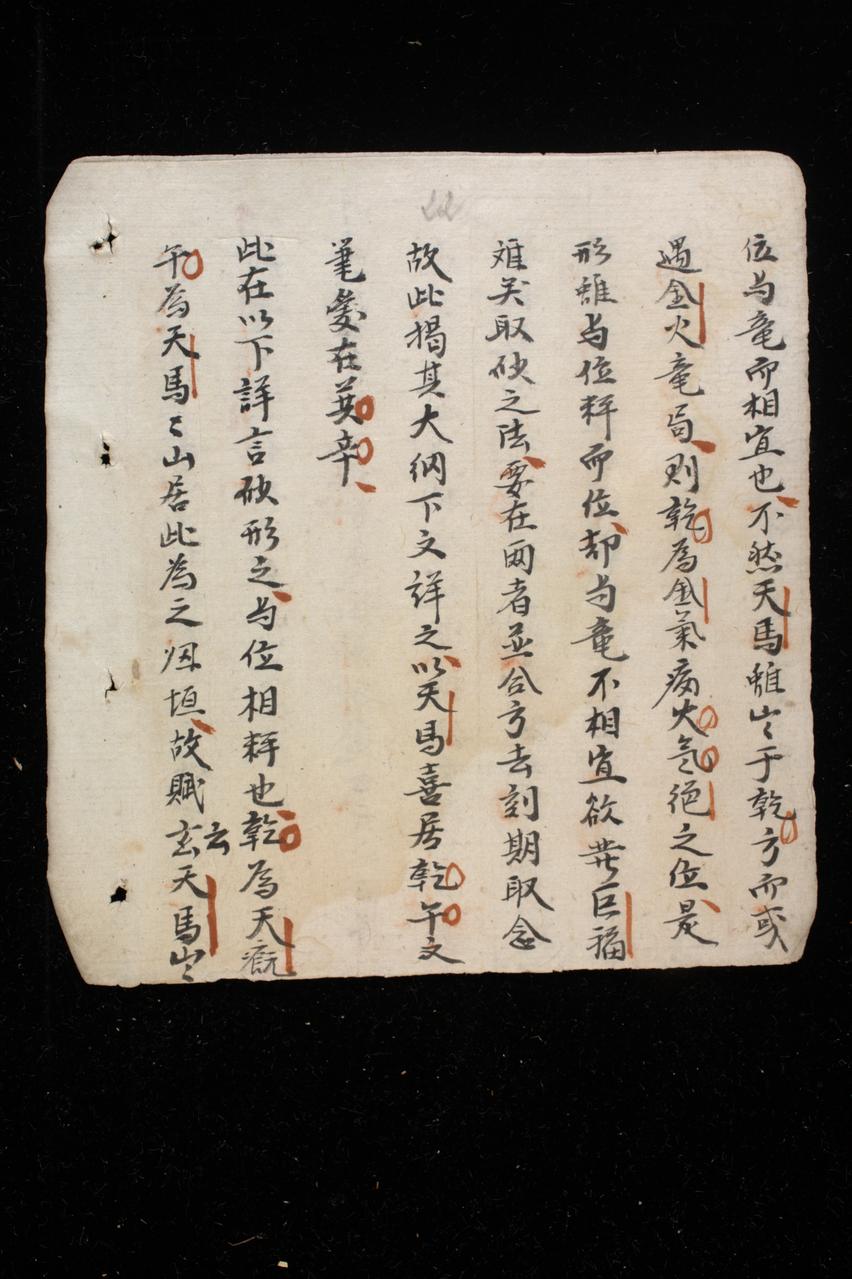 位与竜而相宜也不然天馬雖出于乾方而或
遇金火竜局則乾為金氣病火気絕之位是
形雖与位稱而位却与竜不相宜欲발巨福
难矣取砂之法要在両者並合方去刻期取念
故此揭其大綱下文詳之以天馬喜居乾午文
筆爱在巽辛
此在以下詳言砂形之与位相稱也乾為天廐
午為天馬〻山居此為之归垣故賦
云玄天馬出